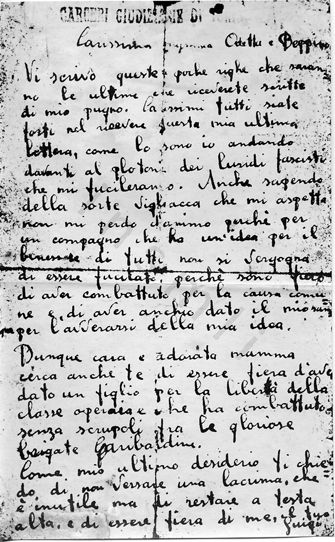 CARCERI GIUDIZIARIE DI
Carissima mamma Odetta e Beppino
Vi scrivo queste poche righe che saran-
no le ultime che riceverete scritte
di mio pugno. Carissimi tutti siate
forti nel ricevere questa mia ultima
lettera, come lo sono io andando
davanti al plotone dei luridi fascisti
che mi fucileranno. Anche sapendo
della sorte vigliacca che mi aspetta
non mi perdo d'animo perchè per
un compagno che ha un'idea per il
benessere di tutti non si vergogna
di essere fucilato, perchè sono fiero
di aver combattuto per la causa comu-
ne e di aver anch'io dato il mio san-
gue per l'avverarsi della mia idea.
Dunque cara e adorata mamma
cerca anche te di essere fiera d'aver
dato un figlio per la libertà della
classe operaia e che ha combattuto
senza scrupoli fra le gloriose
brigate Garibaldine.
Come mio ultimo desiderio ti chie-
do, di non versare una lacrima, che
è inutile ma di restare a testa
alta, e di essere fiera di me, il tuo
Luigi